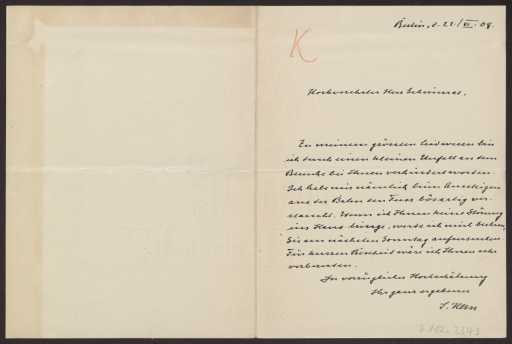 Berlin, d. 22/VI. 08.
K
Hochverehrter Herr
Zu meinem grössten Leidwesen bin
ich durch einen kleinen Unfall an dem
Besuche bei Ihnen verhindert worden.
Ich habe mir nämlich beim Aussteigen
aus der Bahn den Fuss bösartig ver-
staucht. Wenn ich Ihnen keine Störung
ins Haus bringe, werde ich mir
Sie am nächsten Sonntag aufzusuchen.
Für kurzen Bescheid wäre ich Ihnen sehr
verbunden.
In vorzüglicher Hochschätzung
Ihr ganz ergebener